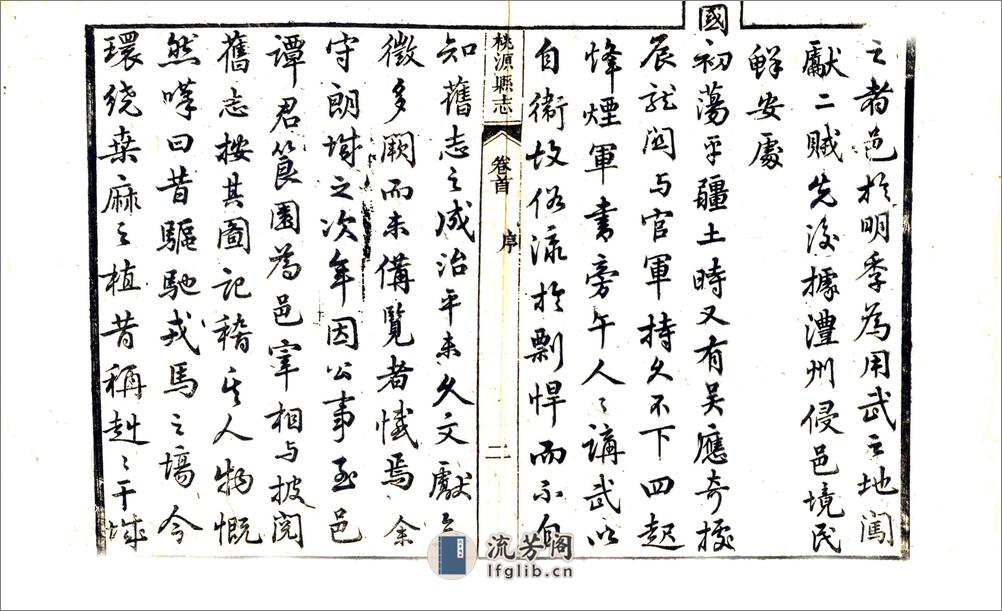 之者邑於明季為用武之地闖
獻二賊先後據澧州侵邑境民
鮮安處
國初蕩平疆土時又有吳應奇據
辰龍關與官軍持久不下四起
烽煙軍書旁午人々講武以
自衛故俗流於剽悍而不自
桃源縣志
卷首
序
二
知舊志之成治平未久文獻之
徵多闕而未備覽者憾焉余
守朗州之次年因公事至邑
譚君筤園為邑宰相与披閱
舊志按其圖記稽其人物慨
然嘆曰昔驅馳戎馬之場今
環繞桑麻之植昔稱赳々干城
流芳阁
lfglib.cn